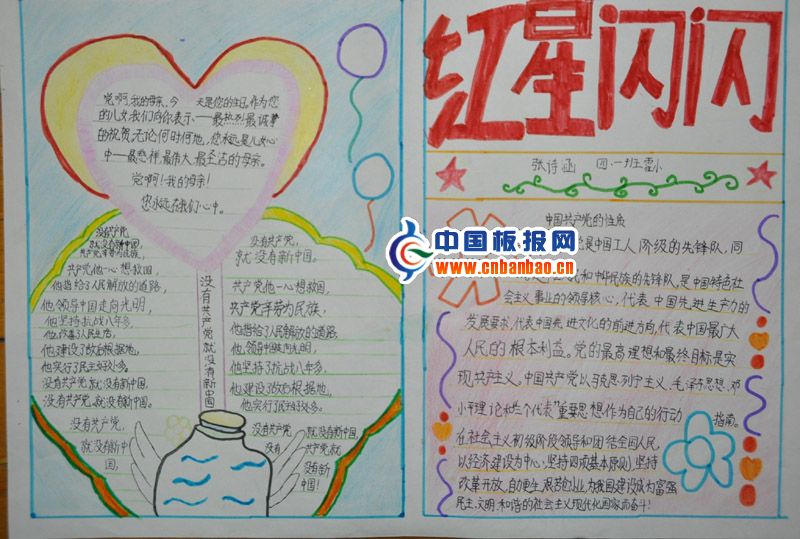 党啊,我的母亲,今天是您的生日,作为您
的儿女我们向你表示一一最热烈最诚挚
的祝贺,无论何时何地,您永远是儿女心
中一最慈祥,最伟大,最圣洁的母亲。
党啊!我的母亲!
您永远在我们心中。
没有共产党,
就没有新中国,
共产党辛劳为民族,
共产党他一心想救国,
他指给了人民解放的道路,
他领导中国走向光明,
他坚持抗战八年多,
他改善了人民生活,
他建设了敌后根据地,
他实行了民主好处多。
没有共产党,就没有新中国,
没有共产党,就没有新中国。
没有共产党,
就没有新中
国,
没有共产党就没有新中国
没有共产党,
就没有新中国。
共产党他一心想救国,
共产党辛劳为民族,
他指给了人民解放的道路
他领导中国走向光明,
他坚持了抗战八年多,
他建设了敌后根据地,
他实行了民主好处多。
没有共产党,
没有
就没有新中国,
共产党,就
没有新
中国!
红星闪闪
张诗涵 四·一班 霍小
中国共产党的性质
党是中国工人阶级的先锋队,同
和中华民族的先锋队,是中国特色社
会主义事业的领导核心,代表中国先进生产力的
发展要求,代表中国先进文化的前进方向,代表中国最广大
人民的根本利益。党的最高理想和最终目标是实
现共产主义。中国共产党以马克思列宁主义、毛泽东思想、邓
小平理论和“三个代表”重要思想作为自己的行动
指南。
在社会主义初级阶段领导和团结全国人民
以经济建设为中心,坚持四项基本原则,坚持
改革开放,自力更生,艰苦创业,为我国建设成为富强
民主、文明、和谐的社会主义现代化国家而奋斗!
中国板报网
www.cnbanbao.cn